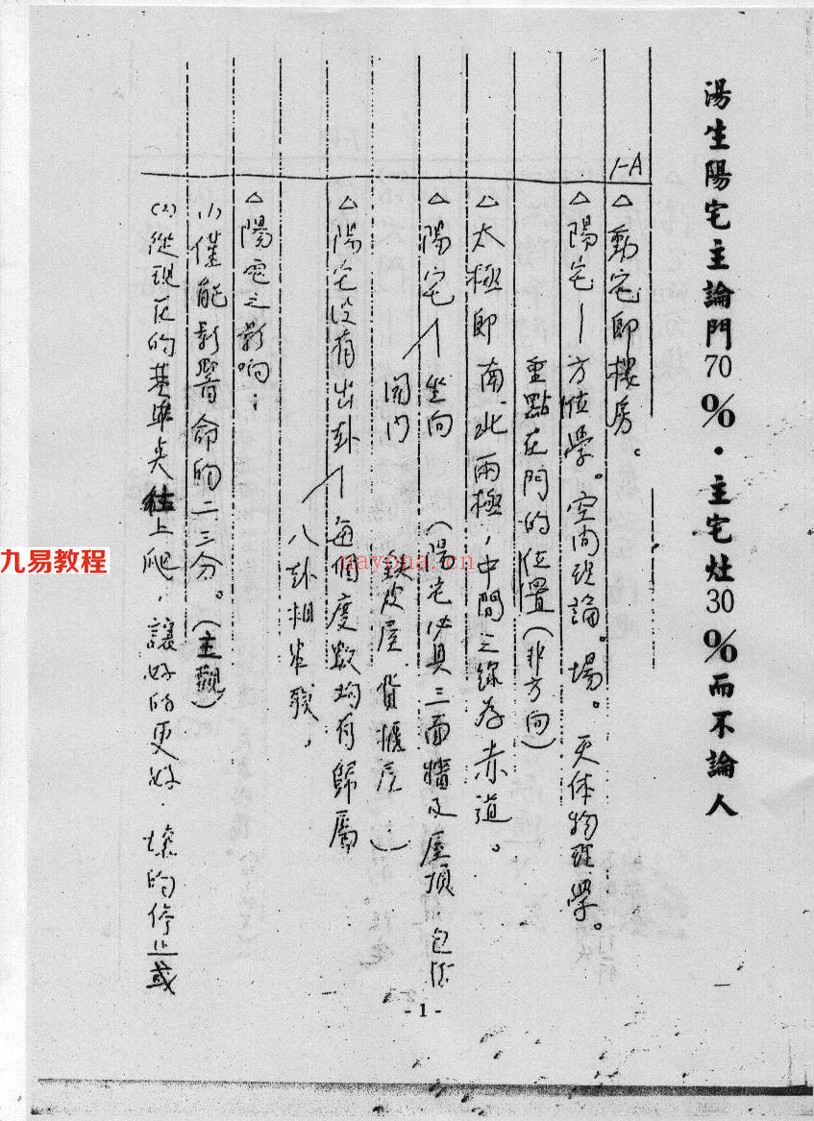 湯生陽宅主論門70%·主宅灶30%而不論人
1-A
△動宅即樓房。
△陽宅—方位學。空间理論。場。天体物理學。
重點在門的位置(非方向)
△太極即南、北兩極,中間之線為赤道。
△陽宅 坐向 (陽宅必具三面牆及屋頂 包括
開门 鉄皮屋 貨櫃屋)
△陽宅没有出卦 每個度數均有歸屬
八卦相
△陽宅之影响:
(1)僅能影響命的二三分。(主觀)
(2)從現在的基準点往上爬,讓好的更好.壞的停止或
-1-
九易教程
nayona.cn